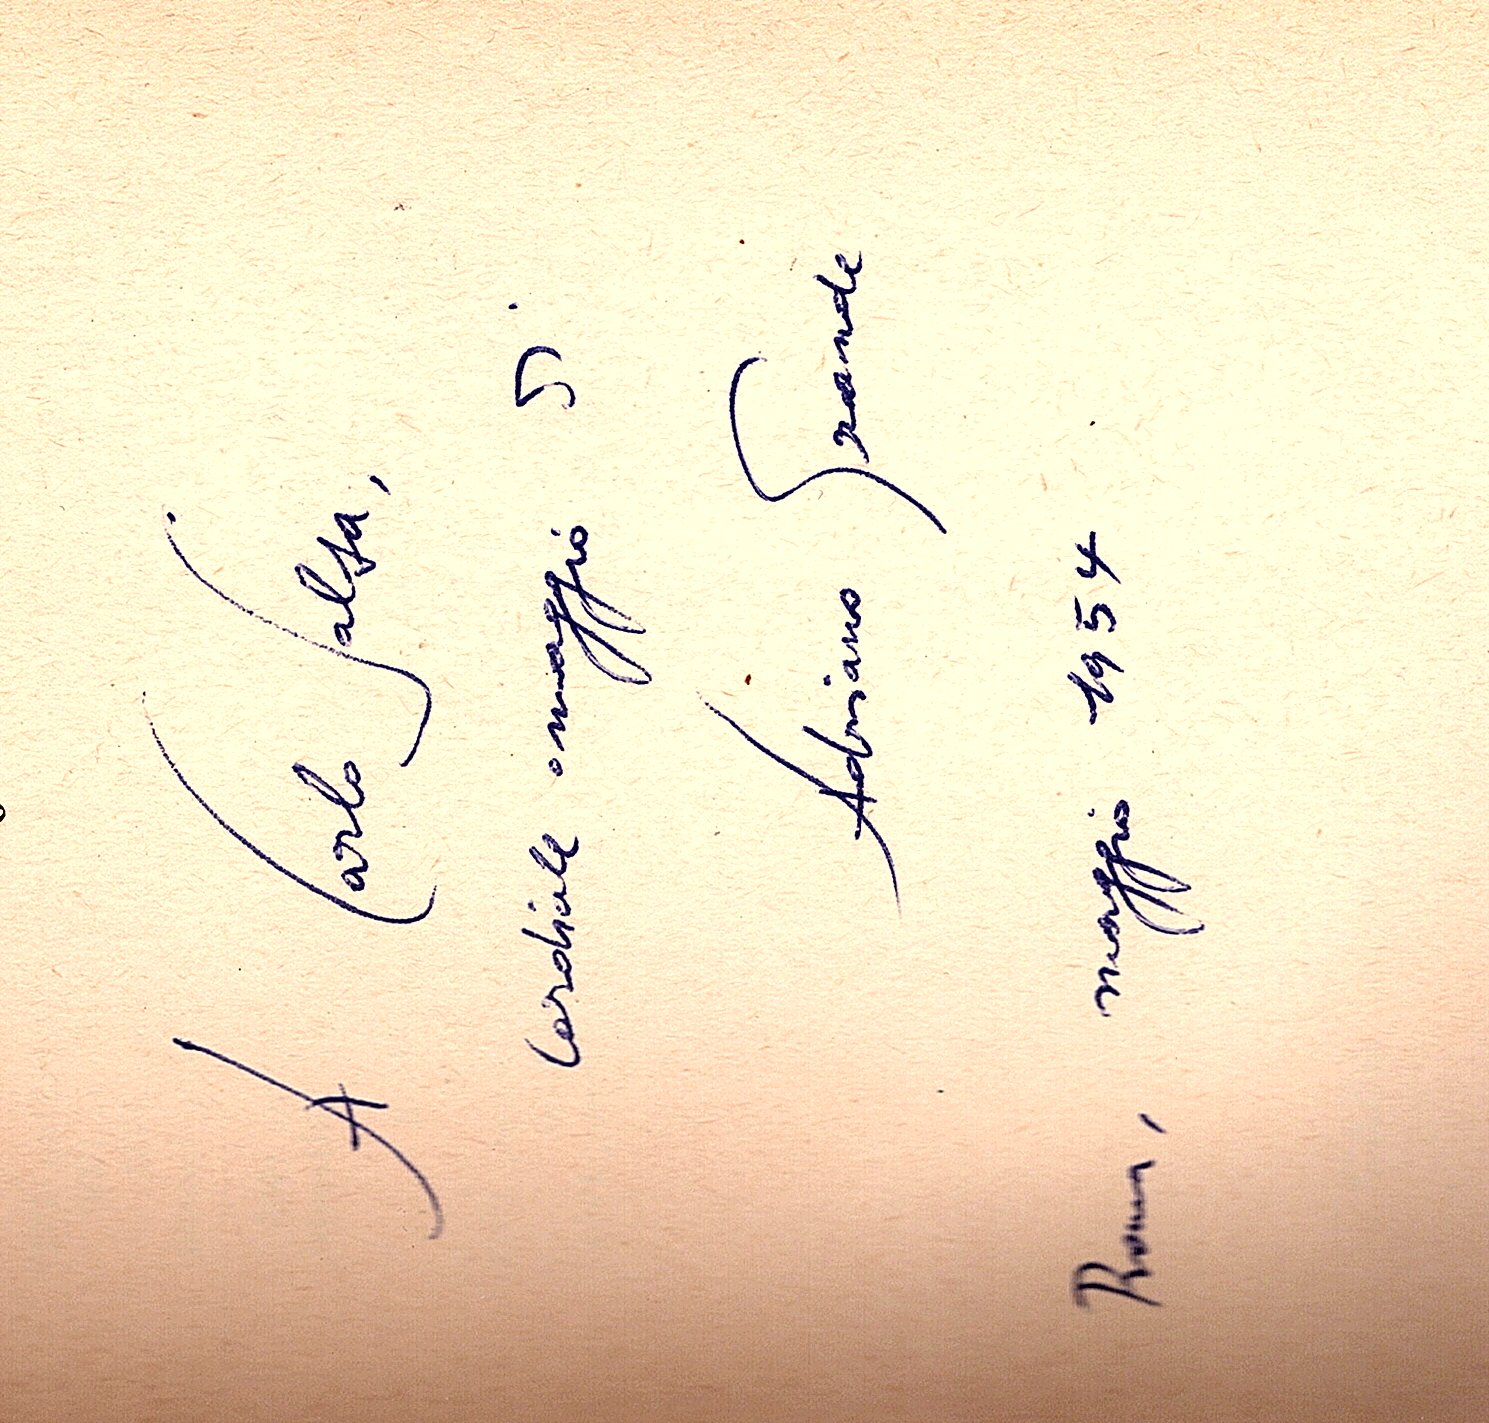 A Carlo Salsa,
cordiale omaggio di
Adriano Grande
Roma, maggio 1954